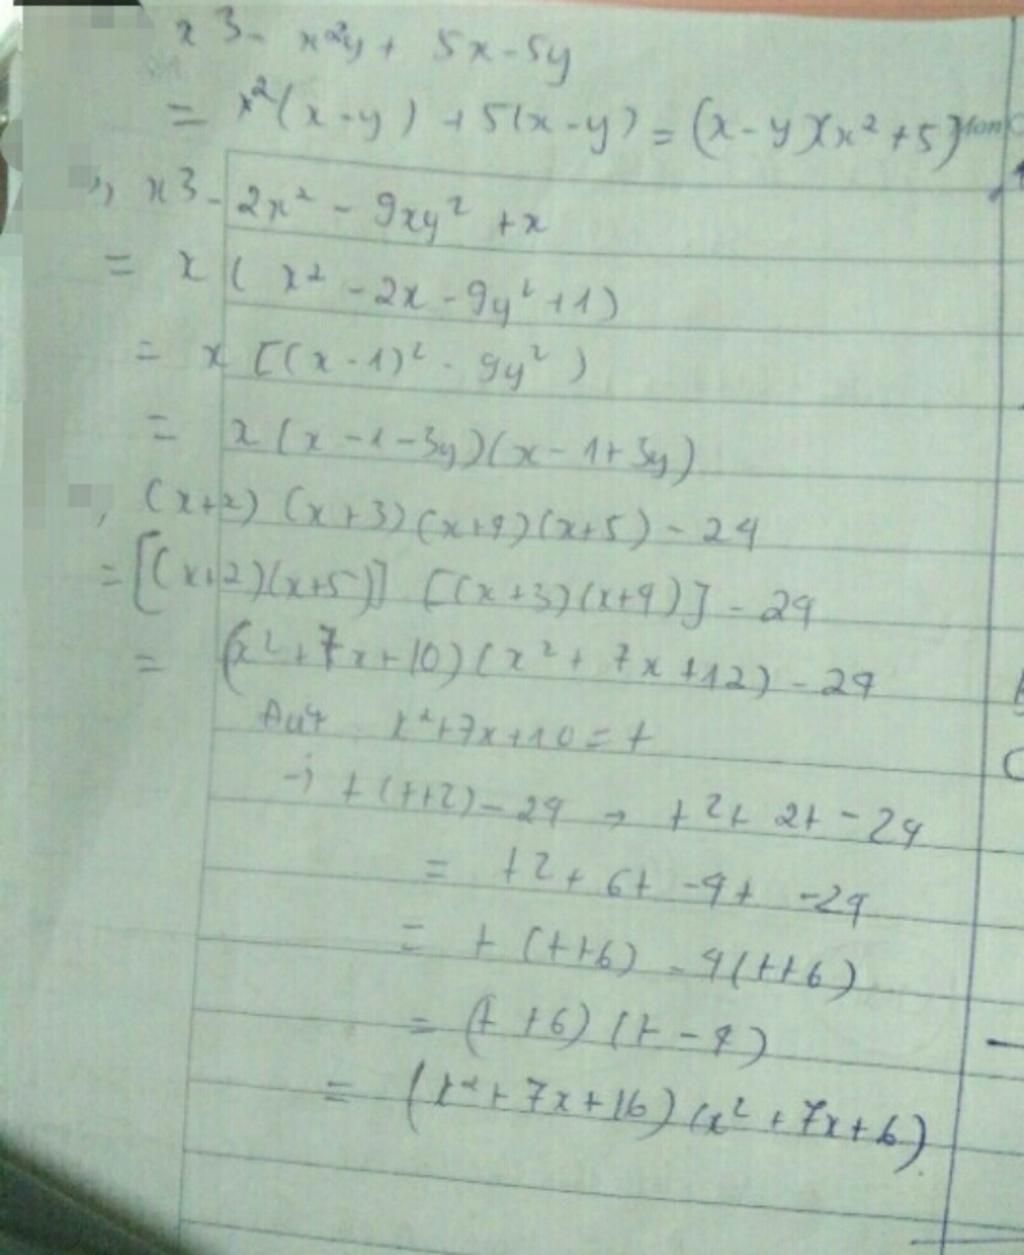 x3 - x²y + 5x - 5y
= x²(x - y) + 5(x - y) = (x - y)(x² + 5)
, x3 - 2x² - 9xy² + x
= x ( x² - 2x - 9y² + 1)
= x [(x - 1)² - 9y² )
= x (x - 1 - 3y)(x - 1 + 3y)
, (x+2) (x+3) (x+4)(x+5) - 24
= [(x+2)(x+5)] [(x+3)(x+4)] - 24
= (x² + 7x + 10) (x² + 7x + 12) - 24
x² + 7x + 10 = t
t (t+2) - 24 → t2 + 2t - 24
= t2 + 6t - 4t - 24
= t (t+6) - 4(t+6)
= (t + 6) (t - 4)
= (x² + 7x + 16) (x² + 7x + 6)